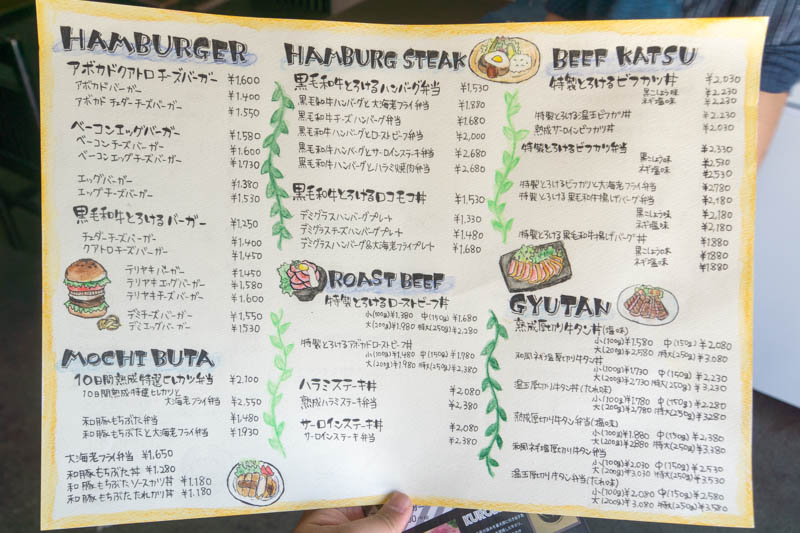 HAMBURGER
アボカドクアトロチーズバーガー ¥1.600
アボカドバーガー ¥1.400
アボカドチェダーチーズバーガー ¥1.550
ベーコンエッグバーガー ¥1.580
ベーコンチーズバーガー ¥1.600
ベーコンエッグチーズバーガー ¥1.730
エッグバーガー ¥1.380
エッグチーズバーガー ¥1.530
黒毛和牛とろけるバーガー ¥1.250
チェダーチーズバーガー ¥1.400
クアトロチーズバーガー ¥1.450
テリヤキバーガー ¥1.450
テリヤキエッグバーガー ¥1.580
テリヤキチーズバーガー ¥1.600
デミチーズバーガー ¥1.550
デミエッグバーガー ¥1530
MOCHI BUTA
10日間熟成特選ヒレカツ弁当 ¥2.100
10日間熟成特選ヒレカツと
大海老フライ弁当 ¥2.550
和豚もちぶた弁当 ¥1.480
和豚もちぶたと大海老フライ弁当 ¥1930
大海老フライ弁当 ¥1.650
和豚もちぶた丼 ¥1.280
和豚もちぶたソースカツ丼 ¥1.180
和豚もちぶたたれカツ丼 ¥1.180
HAMBURG STEAK
黒毛和牛とろけるハンバーグ弁当 ¥1.530
黒毛和牛ハンバーグと大海老フライ弁当 ¥1.880
黒毛和牛チーズハンバーグ弁当 ¥1.680
黒毛和牛ハンバーグとローストビーフ弁当 ¥2,000
黒毛和牛ハンバーグとサーロインステーキ弁当 ¥2.680
黒毛和牛ハンバーグとハラミ焼肉弁当 ¥2.680
黒毛和牛とろけるロコモコ丼 ¥1.530
デミグラスハンバーグプレート ¥1.330
デミグラスチーズハンバーグプレート ¥1.480
デミグラスハンバーグ&大海老フライプレート ¥1.680
ROAST BEEF
特製とろけるローストビーフ丼
小(100g)¥1.380 中(150g)¥1.680
大(200g)¥1.980 特大(250g)¥2.280
特製とろけるアボカドローストビーフ丼
小(100g)¥1.480 中(150g)¥1.780
大(200g)¥1.980 特大(250g)¥2.480
ハラミステーキ丼 ¥2.080
熟成ハラミステーキ弁当 ¥2.380
サーロインステーキ丼 ¥2.080
サーロインステーキ弁当 ¥2.380
BEEF KATSU
特製とろけるビフカツ丼 ¥2,030
黒こしょう味 ¥2.230
ネギ塩味 ¥2.230
特製とろける温玉ビフカツ丼 ¥2.230
熟成サーロインビフカツ丼 ¥2.030
特製とろけるビフカツ弁当 ¥2.330
黒こしょう味 ¥2530
ネギ塩味 ¥2.530
特製とろけるビフカツと大海老フライ弁当 ¥2780
特製とろける黒毛和牛揚げバーグ弁当 ¥2.180
黒こしょう味 ¥2.180
ネギ塩味 ¥2.180
特製とろける黒毛和牛揚げバーグ丼 ¥1880
黒こしょう味 ¥1.880
ネギ塩味 ¥1.880
GYUTAN
熟成厚切り牛タン丼(塩味)
小(100g)¥1.580 中(150g)¥2.080
大(200g)¥2.580 特大(250g)¥3.080
和風ネギ塩厚切り牛タン丼
小(100g)¥1730 中(150g)¥2.230
大(200g)¥2.730 特大(250g)¥3,230
温玉厚切り牛タン丼(たれ味)
小(100g)¥1.780 中(150g)¥2.280
大(200g)¥2.780 特大(250g)¥3280
熟成厚切り牛タン弁当(塩味)
小(100g)¥1.880 中(150g)¥2,380
大(200g)¥2.880 特大(250g)¥3.380
和風ネギ塩厚切り牛タン弁当
小(100g)¥2,030 中(150g)¥2.530
大(200g)¥3.030 特大(250g)¥3.530
温玉厚切り牛タン弁当(たれ味)
小(100g)¥2,080 中(150g)¥2.580
大(200g)¥3.080 特大(250g)¥3.580